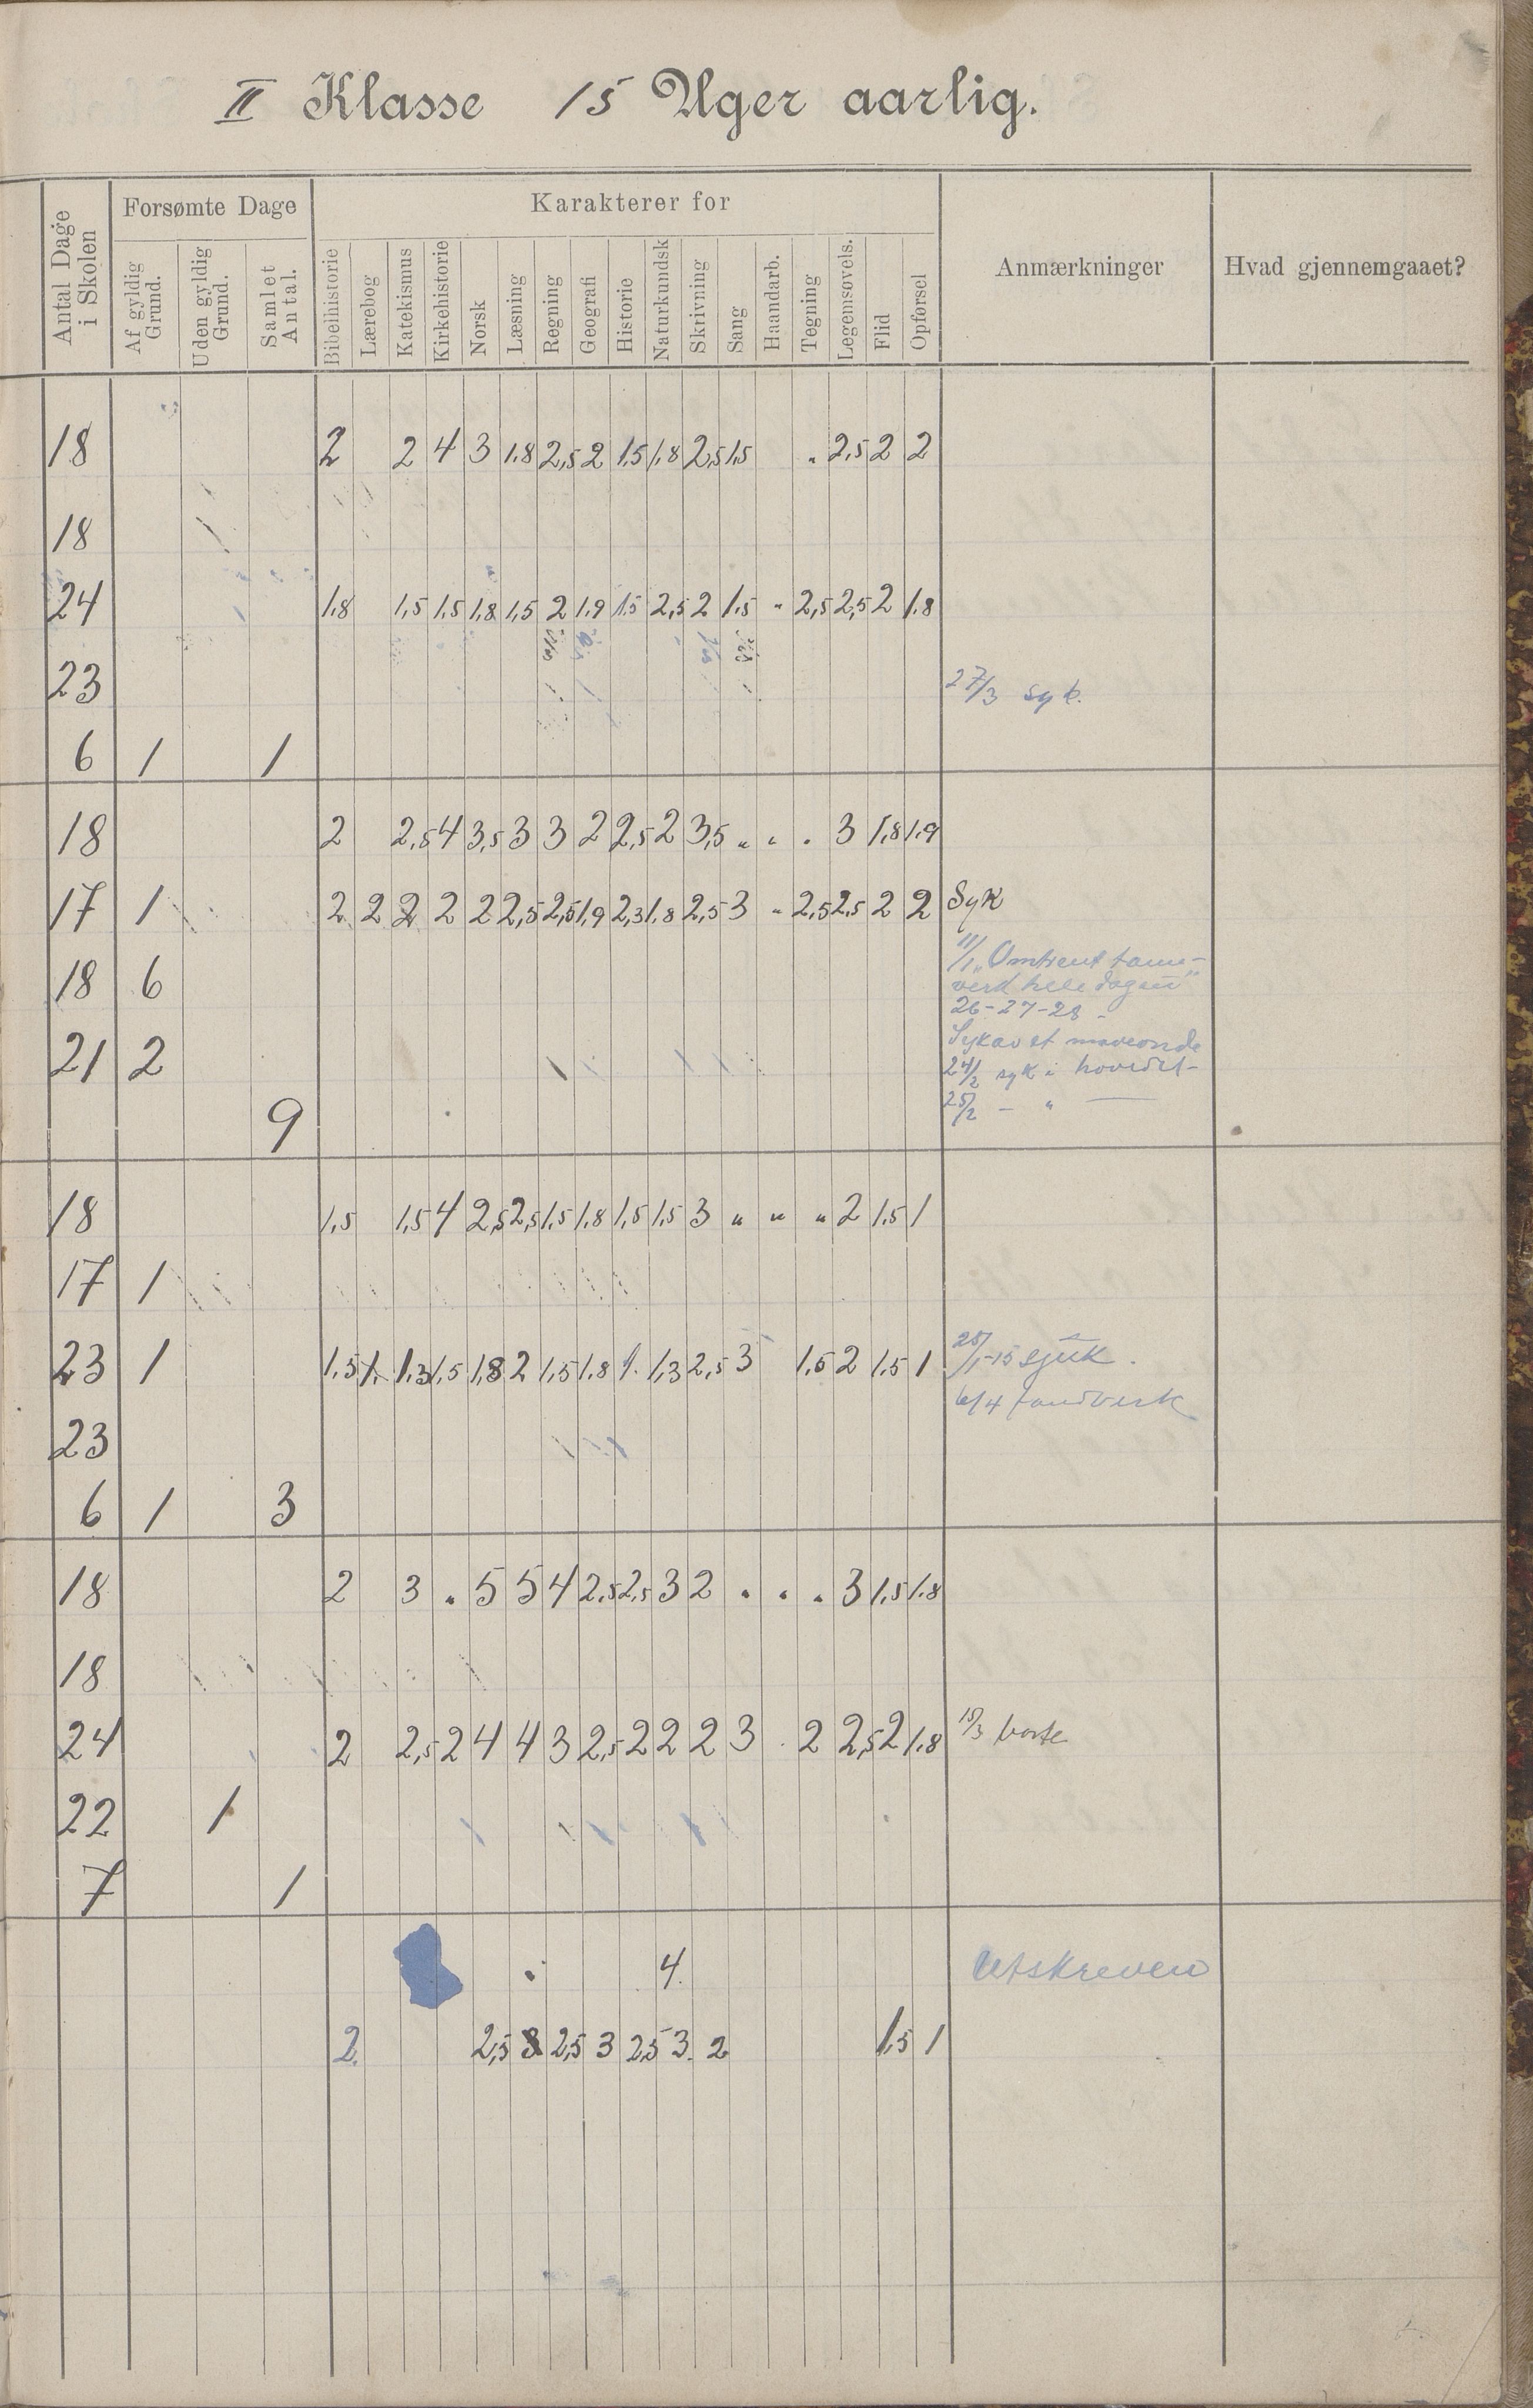 II Klasse 15 Uger aarlig.
Antal Dage i Skolen
Forsømte Dage
Af gyldig Grund.
Uden gyldig Grund.
Samlet Antal.
Karakterer for
Bibelhistorie
Lærebog
Katekismus
Kirkehistorie
Norsk
Læsning
Regning
Geografi
Historie
Naturkundsk
Skrivning
Sang
Haandarb.
Tegning
Legemsøvels.
Flid
Opførsel
Anmærkninger
Hvad gjennemgaaet?
18 2 2 4 3 1.8 2,5 2 1.5 1.8 2,5 1,5 " 2,5 2 2
18
24 1.8 1,5 1.5 1,8 1,5 2 1.9 1.5 2,5 2 1.5 " 2,5 2,5 2 1.8
23 27/3 syk.
6 1 1
18 2 2,5 4 3,5 3 3 2 2,5 2 3,5 " " " 3 1,8 1.9
17 1 2 2 2 2 2 2,5 2,5 1.9 2,3 1.8 2,5 3 " 2,5 2,5 2 2 Syk
11/1 "Omtrent tann-
18 6 verk hele dagen"
26-27-28 -
Syk av et maveonde
21 2 24/2 syk i hovedet-
25/2 - " —
9
18 1,5 1,5 4 2,5 2,5 1.5 1.8 1,5 1.5 3 " " " 2 1.5 1
17 1
23 1 1.5 1. 1.3 1.5 1.8 2 1.5 1.8 1. 1.3 2,5 3 1.5 2 1.5 1 25/1-15 sjuk.
6/4 tandverk
23
6 1 3
18 2 3 " 5 5 4 2,5 2,5 3 2 " " " 3 1.5 1.8
18
24 2 2,5 2 4 4 3 2,5 2 2 2 3 2 2,5 2 1.8 borte
22 1
7 1
4. Utskreven
2. 2,5 3 2,5 3 2,5 3. 2 1,5 1